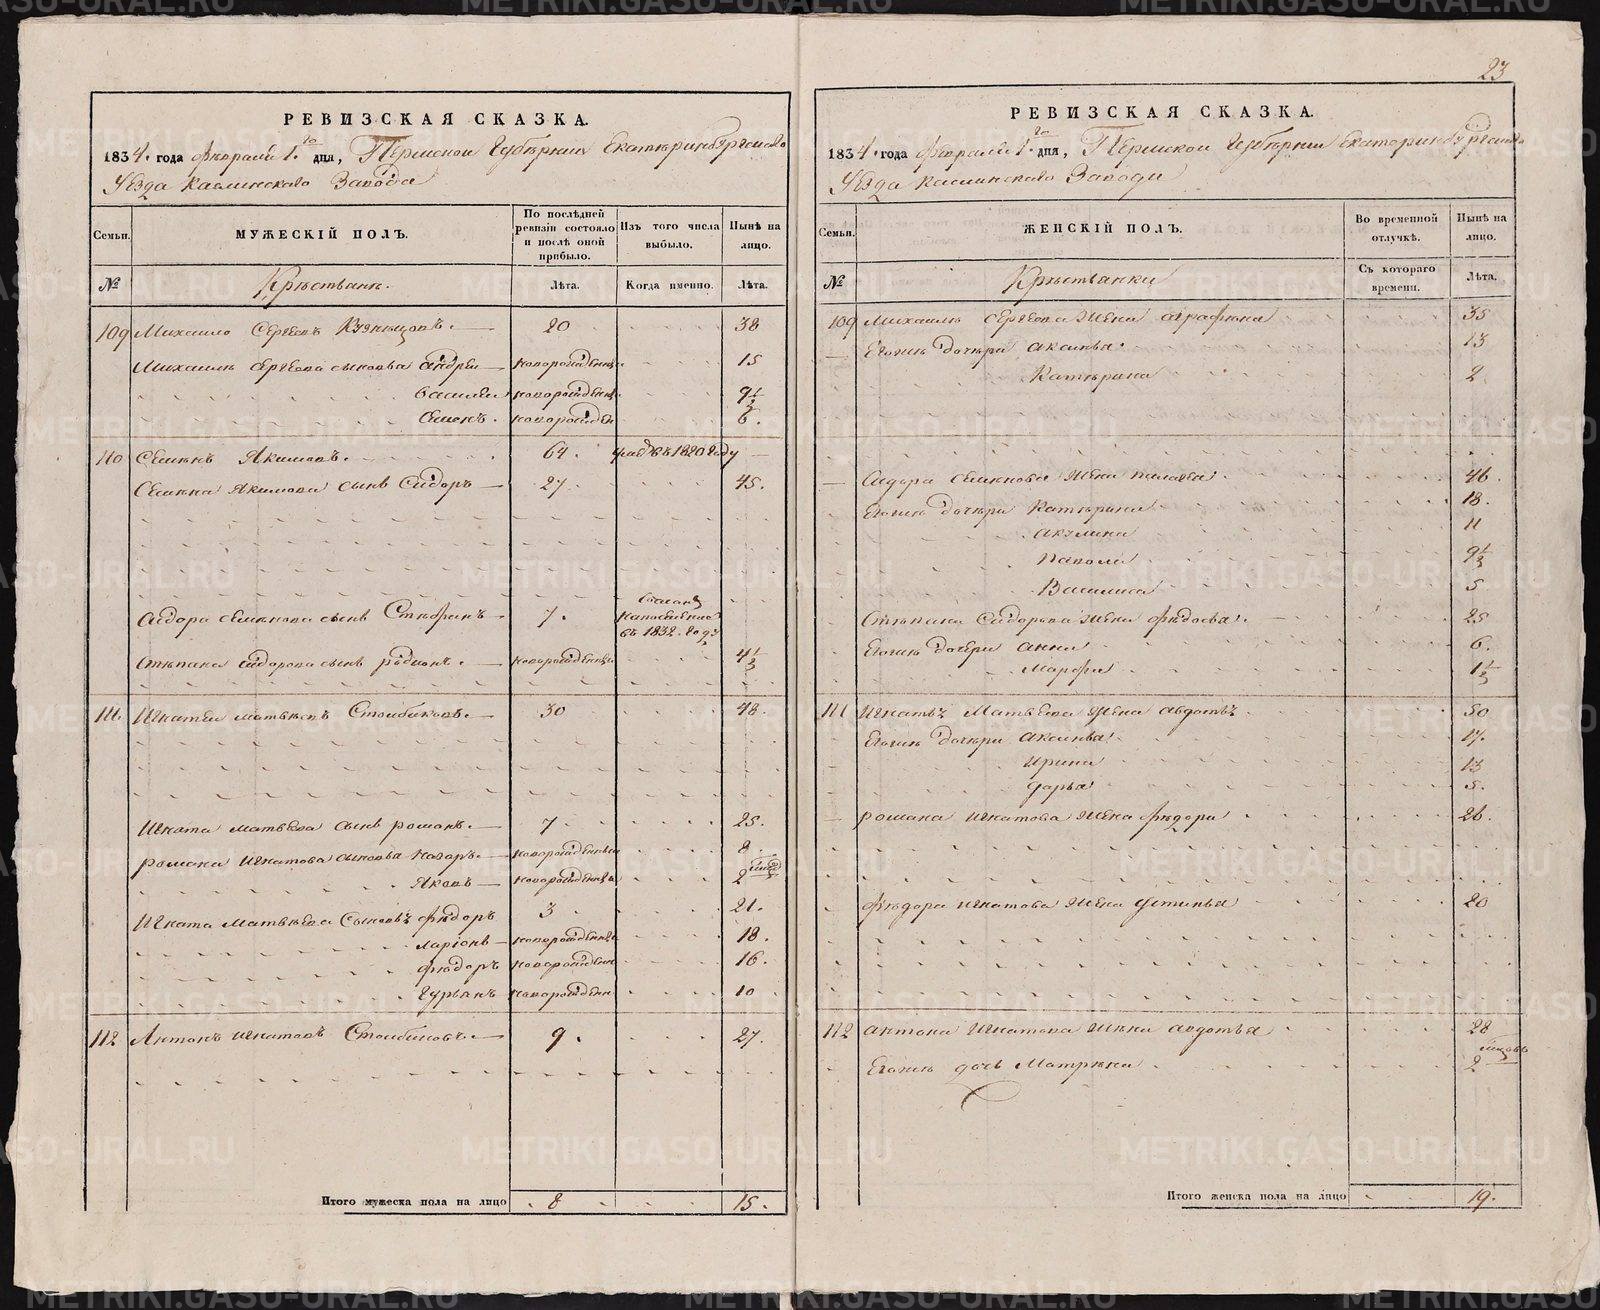 23
РЕВИЗСКАЯ СКАЗКА.
1834. года февраля 1.го дня, Пермской Губернии Екатеринбургскаго
Уезда Каслинскаго Завода
Семьи. МУЖЕСКІЙ ПОЛЪ. По послѣдней ревизіи состояло и послѣ оной прибыло. Изъ того числа выбыло. Нынѣ на лицо.
№ Крестьяне. Лѣта. Когда именно. Лѣта.
109 Михаило Сергеевъ Кузнецовъ. 20 38
Михаила Сергеева сыновья Андрей новорожденны 15
Василей новорожденны 9½
Семенъ. новорожден 6.
110 Семенъ Якимовъ. 64. умре въ 1820 году
Семена Якимова сынъ Сидоръ 27 45.
Сидора Семенова сынъ Степанъ 7. въ 1832. году
Степана Сидорова сынъ Родионъ. новорожденны 4½
111. Игнатей Матвеевъ Столбиковъ. 30 48.
Игната Матвеева сынъ Романъ. 7 25.
Романа Игнатова сыновья Назаръ. новорожденны 8
Яковъ новорожденны 2
Игната Матвеева сыновья Федоръ 3 21.
Ларионъ новорожденны 18.
Федоръ новорожденн 16.
Гурьянъ новорожденн 10
112 Антонъ Игнатовъ Столбиковъ. 9. 27.
Итого мужеска пола на лицо 8 15.
РЕВИЗСКАЯ СКАЗКА.
1834. года февраля 1.го дня, Пермской Губернии Екатеринбургскаго
Уезда Каслинскаго Завода
Семьи. ЖЕНСКІЙ ПОЛЪ. Во временной отлучкѣ. Нынѣ на лицо.
№ Крестьянки Съ котораго времени. Лѣта.
109 Михаила Сергеева жена Аграфена 35
Его же дочери Аксинья. 13
Катерина 2
Сидора Семенова жена Пелагея. 46.
Его же дочери Катерина 18.
Акулина 11
9½
Василиса 5
Степана Сидорова жена Федосья. 25
Его же дочери Анна 6.
Марфа 1½
111 Игнатъ Матвеева жена Авдотья 50
Его же дочери Аксинья 17.
Ирина 13
Дарья 5.
Романа Игнатова жена Федора 26.
Федора Игнатова жена Устинья 20
112 Антона Игнатова жена Авдотья 28
Его же дочь Матрена 2
Итого женска пола на лицо 19.
METRIKI.GASO-URAL.RU